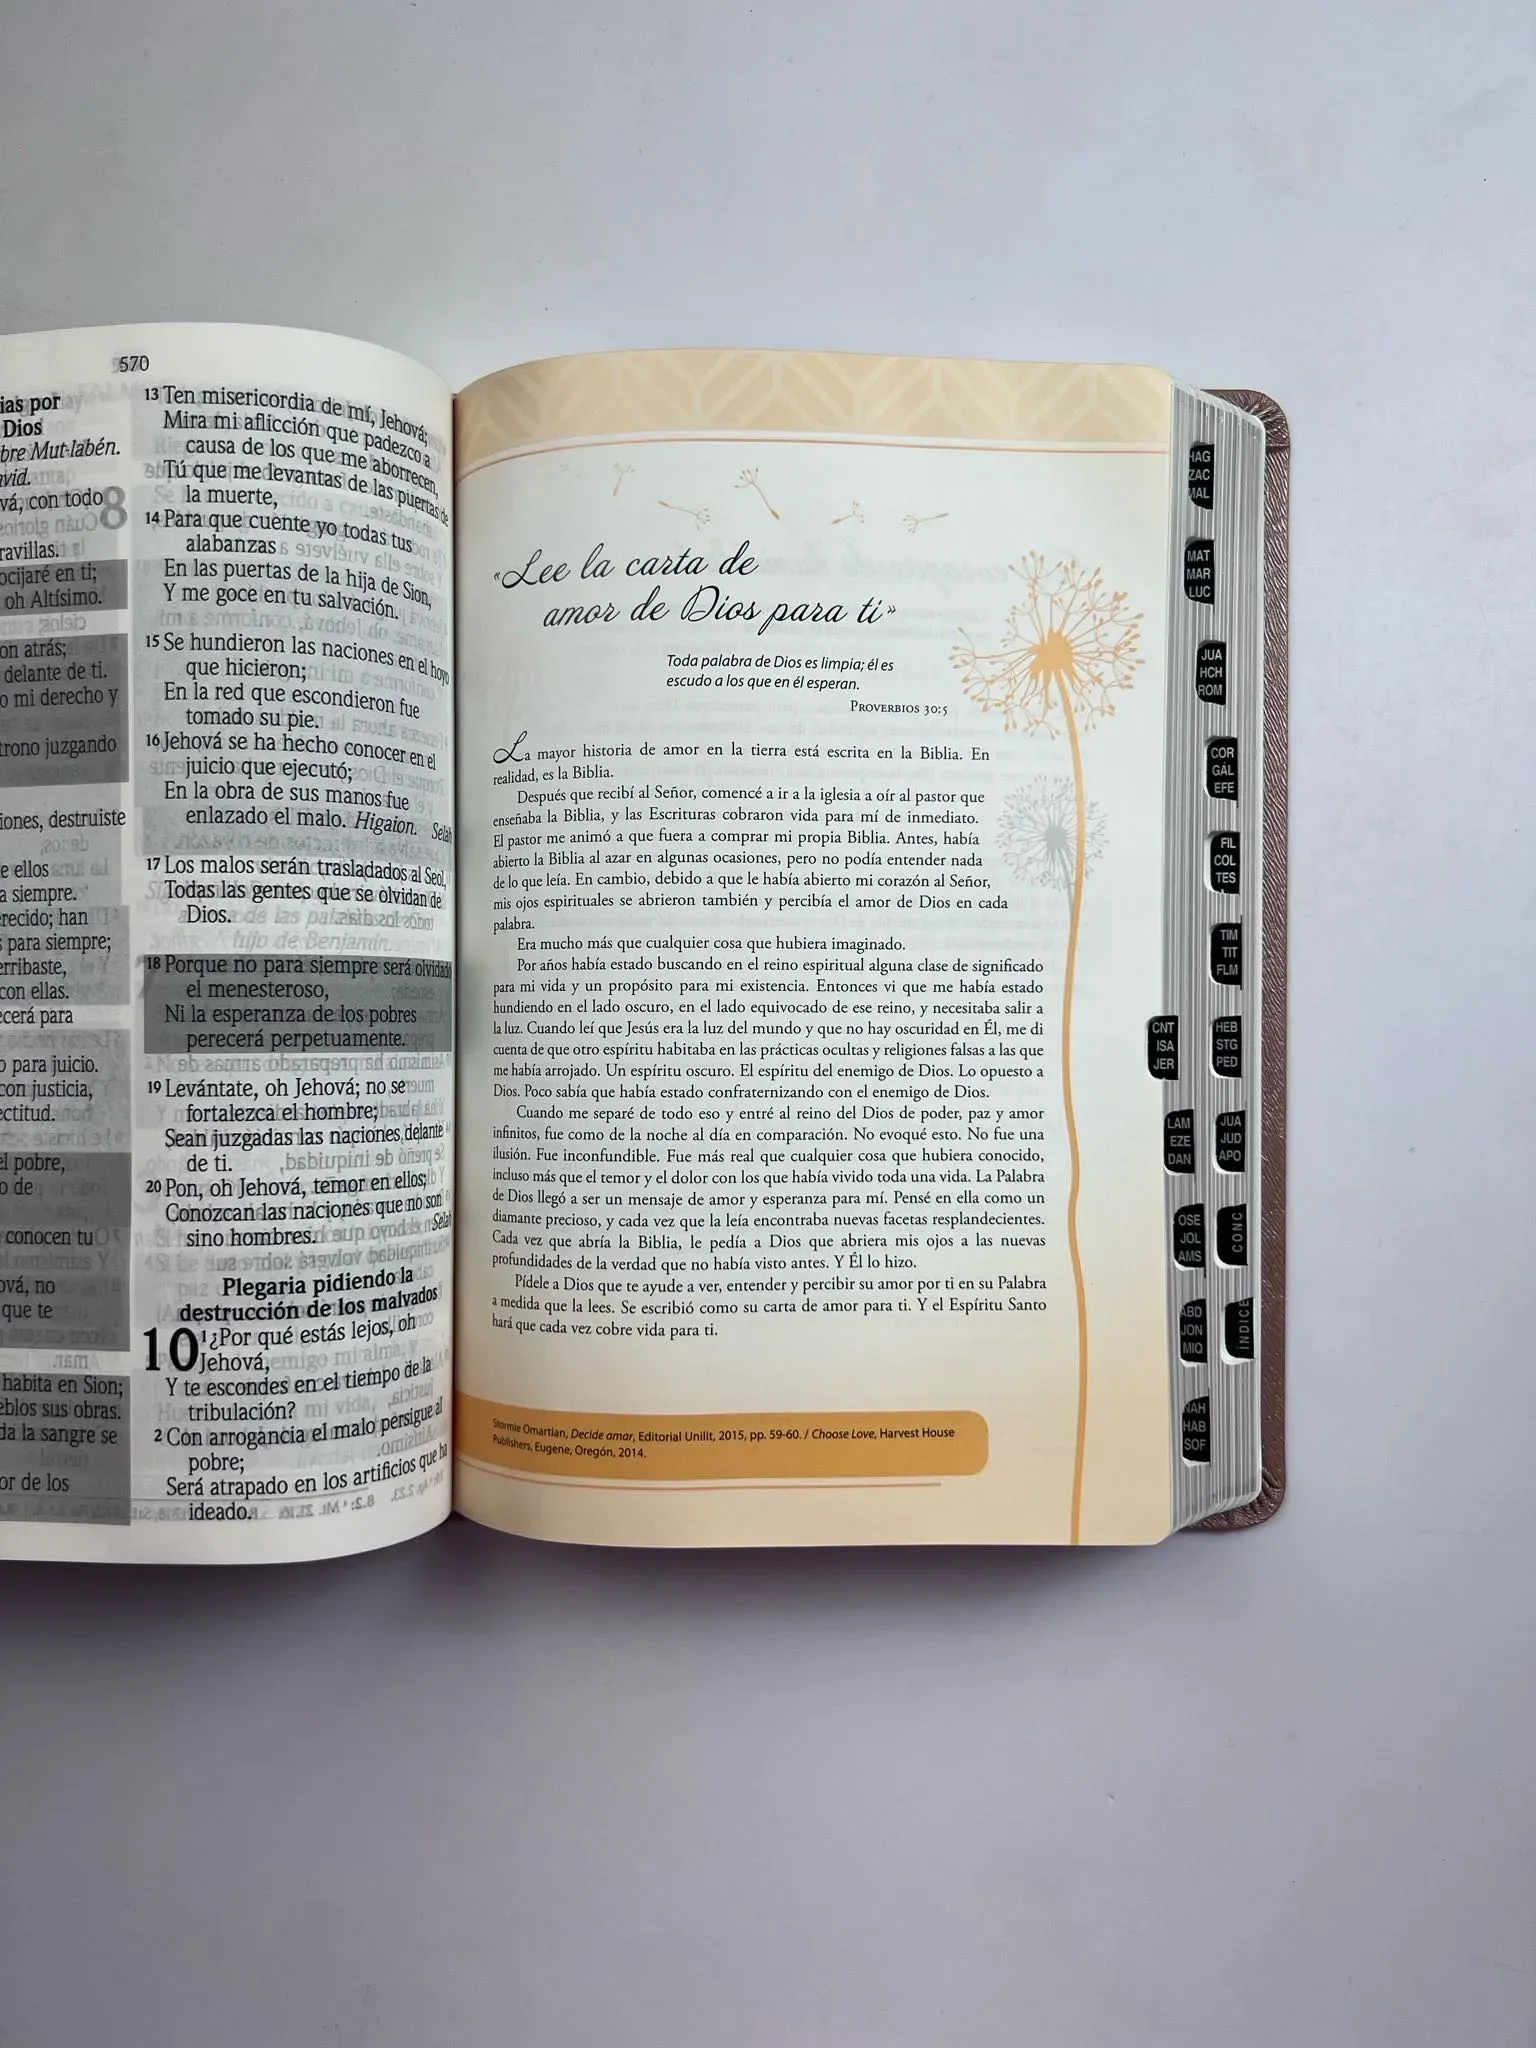 570
ias por
Dios
bre Mut-labén.
vid.
vá, con todo
ravillas.
ocijaré en ti;
oh Altísimo.
on atrás;
delante de ti.
o mi derecho y
trono juzgando
iones, destruiste
e ellos
a siempre.
erecido; han
s para siempre;
erribaste,
con ellas.
ecerá para
o para juicio.
con justicia,
ectitud.
el pobre,
o de
conocen tu
ová, no
que te
habita en Sion;
eblos sus obras.
da la sangre se
or de los
13 Ten misericordia de mí, Jehová;
Mira mi aflicción que padezco a
causa de los que me aborrecen,
Tú que me levantas de las puertas de
la muerte,
14 Para que cuente yo todas tus
alabanzas
En las puertas de la hija de Sion,
Y me goce en tu salvación.
15 Se hundieron las naciones en el hoyo
que hicieron;
En la red que escondieron fue
tomado su pie.
16 Jehová se ha hecho conocer en el
juicio que ejecutó;
En la obra de sus manos fue
enlazado el malo. Higaion. Selah
17 Los malos serán trasladados al Seol,
Todas las gentes que se olvidan de
Dios.
18 Porque no para siempre será olvidado
el menesteroso,
Ni la esperanza de los pobres
perecerá perpetuamente.
19 Levántate, oh Jehová; no se
fortalezca el hombre;
Sean juzgadas las naciones delante
de ti.
20 Pon, oh Jehová, temor en ellos;
Conozcan las naciones que no son
sino hombres. Selah
Plegaria pidiendo la
destrucción de los malvados
10 1 ¿Por qué estás lejos, oh
Jehová,
Y te escondes en el tiempo de la
tribulación?
2 Con arrogancia el malo persigue al
pobre;
Será atrapado en los artificios que ha
ideado.
«Lee la carta de
amor de Dios para ti»
Toda palabra de Dios es limpia; él es
escudo a los que en él esperan.
Proverbios 30:5
La mayor historia de amor en la tierra está escrita en la Biblia. En
realidad, es la Biblia.
Después que recibí al Señor, comencé a ir a la iglesia a oír al pastor que
enseñaba la Biblia, y las Escrituras cobraron vida para mí de inmediato.
El pastor me animó a que fuera a comprar mi propia Biblia. Antes, había
abierto la Biblia al azar en algunas ocasiones, pero no podía entender nada
de lo que leía. En cambio, debido a que le había abierto mi corazón al Señor,
mis ojos espirituales se abrieron también y percibía el amor de Dios en cada
palabra.
Era mucho más que cualquier cosa que hubiera imaginado.
Por años había estado buscando en el reino espiritual alguna clase de significado
para mi vida y un propósito para mi existencia. Entonces vi que me había estado
hundiendo en el lado oscuro, en el lado equivocado de ese reino, y necesitaba salir a
la luz. Cuando leí que Jesús era la luz del mundo y que no hay oscuridad en Él, me di
cuenta de que otro espíritu habitaba en las prácticas ocultas y religiones falsas a las que
me había arrojado. Un espíritu oscuro. El espíritu del enemigo de Dios. Lo opuesto a
Dios. Poco sabía que había estado confraternizando con el enemigo de Dios.
Cuando me separé de todo eso y entré al reino del Dios de poder, paz y amor
infinitos, fue como de la noche al día en comparación. No evoqué esto. No fue una
ilusión. Fue inconfundible. Fue más real que cualquier cosa que hubiera conocido,
incluso más que el temor y el dolor con los que había vivido toda una vida. La Palabra
de Dios llegó a ser un mensaje de amor y esperanza para mí. Pensé en ella como un
diamante precioso, y cada vez que la leía encontraba nuevas facetas resplandecientes.
Cada vez que abría la Biblia, le pedía a Dios que abriera mis ojos a las nuevas
profundidades de la verdad que no había visto antes. Y Él lo hizo.
Pídele a Dios que te ayude a ver, entender y percibir su amor por ti en su Palabra
a medida que la lees. Se escribió como su carta de amor para ti. Y el Espíritu Santo
hará que cada vez cobre vida para ti.
Stormie Omartian, Decide amar, Editorial Unilit, 2015, pp. 59-60. / Choose Love, Harvest House
Publishers, Eugene, Oregón, 2014.
CNT
ISA
JER
LAM
EZE
DAN
OSE
JOL
AMS
ABD
JON
MIQ
NAH
HAB
SOF
HAG
ZAC
MAL
MAT
MAR
LUC
JUA
HCH
ROM
COR
GÁL
EFE
FIL
COL
TES
TIM
TIT
FLM
HEB
STG
PED
JUA
JUD
APO
CONC
ÍNDICE